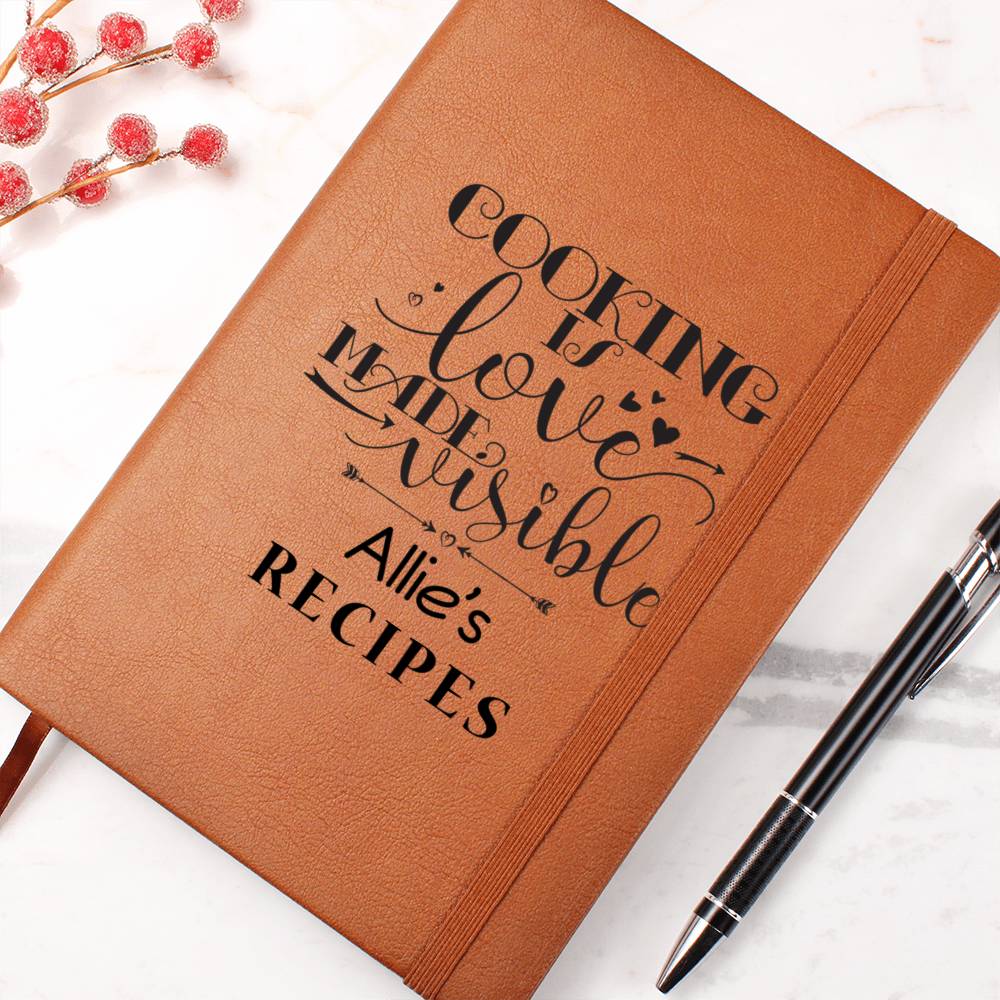 COOKING
IS
love
MADE
visible
Allie's
RECIPES